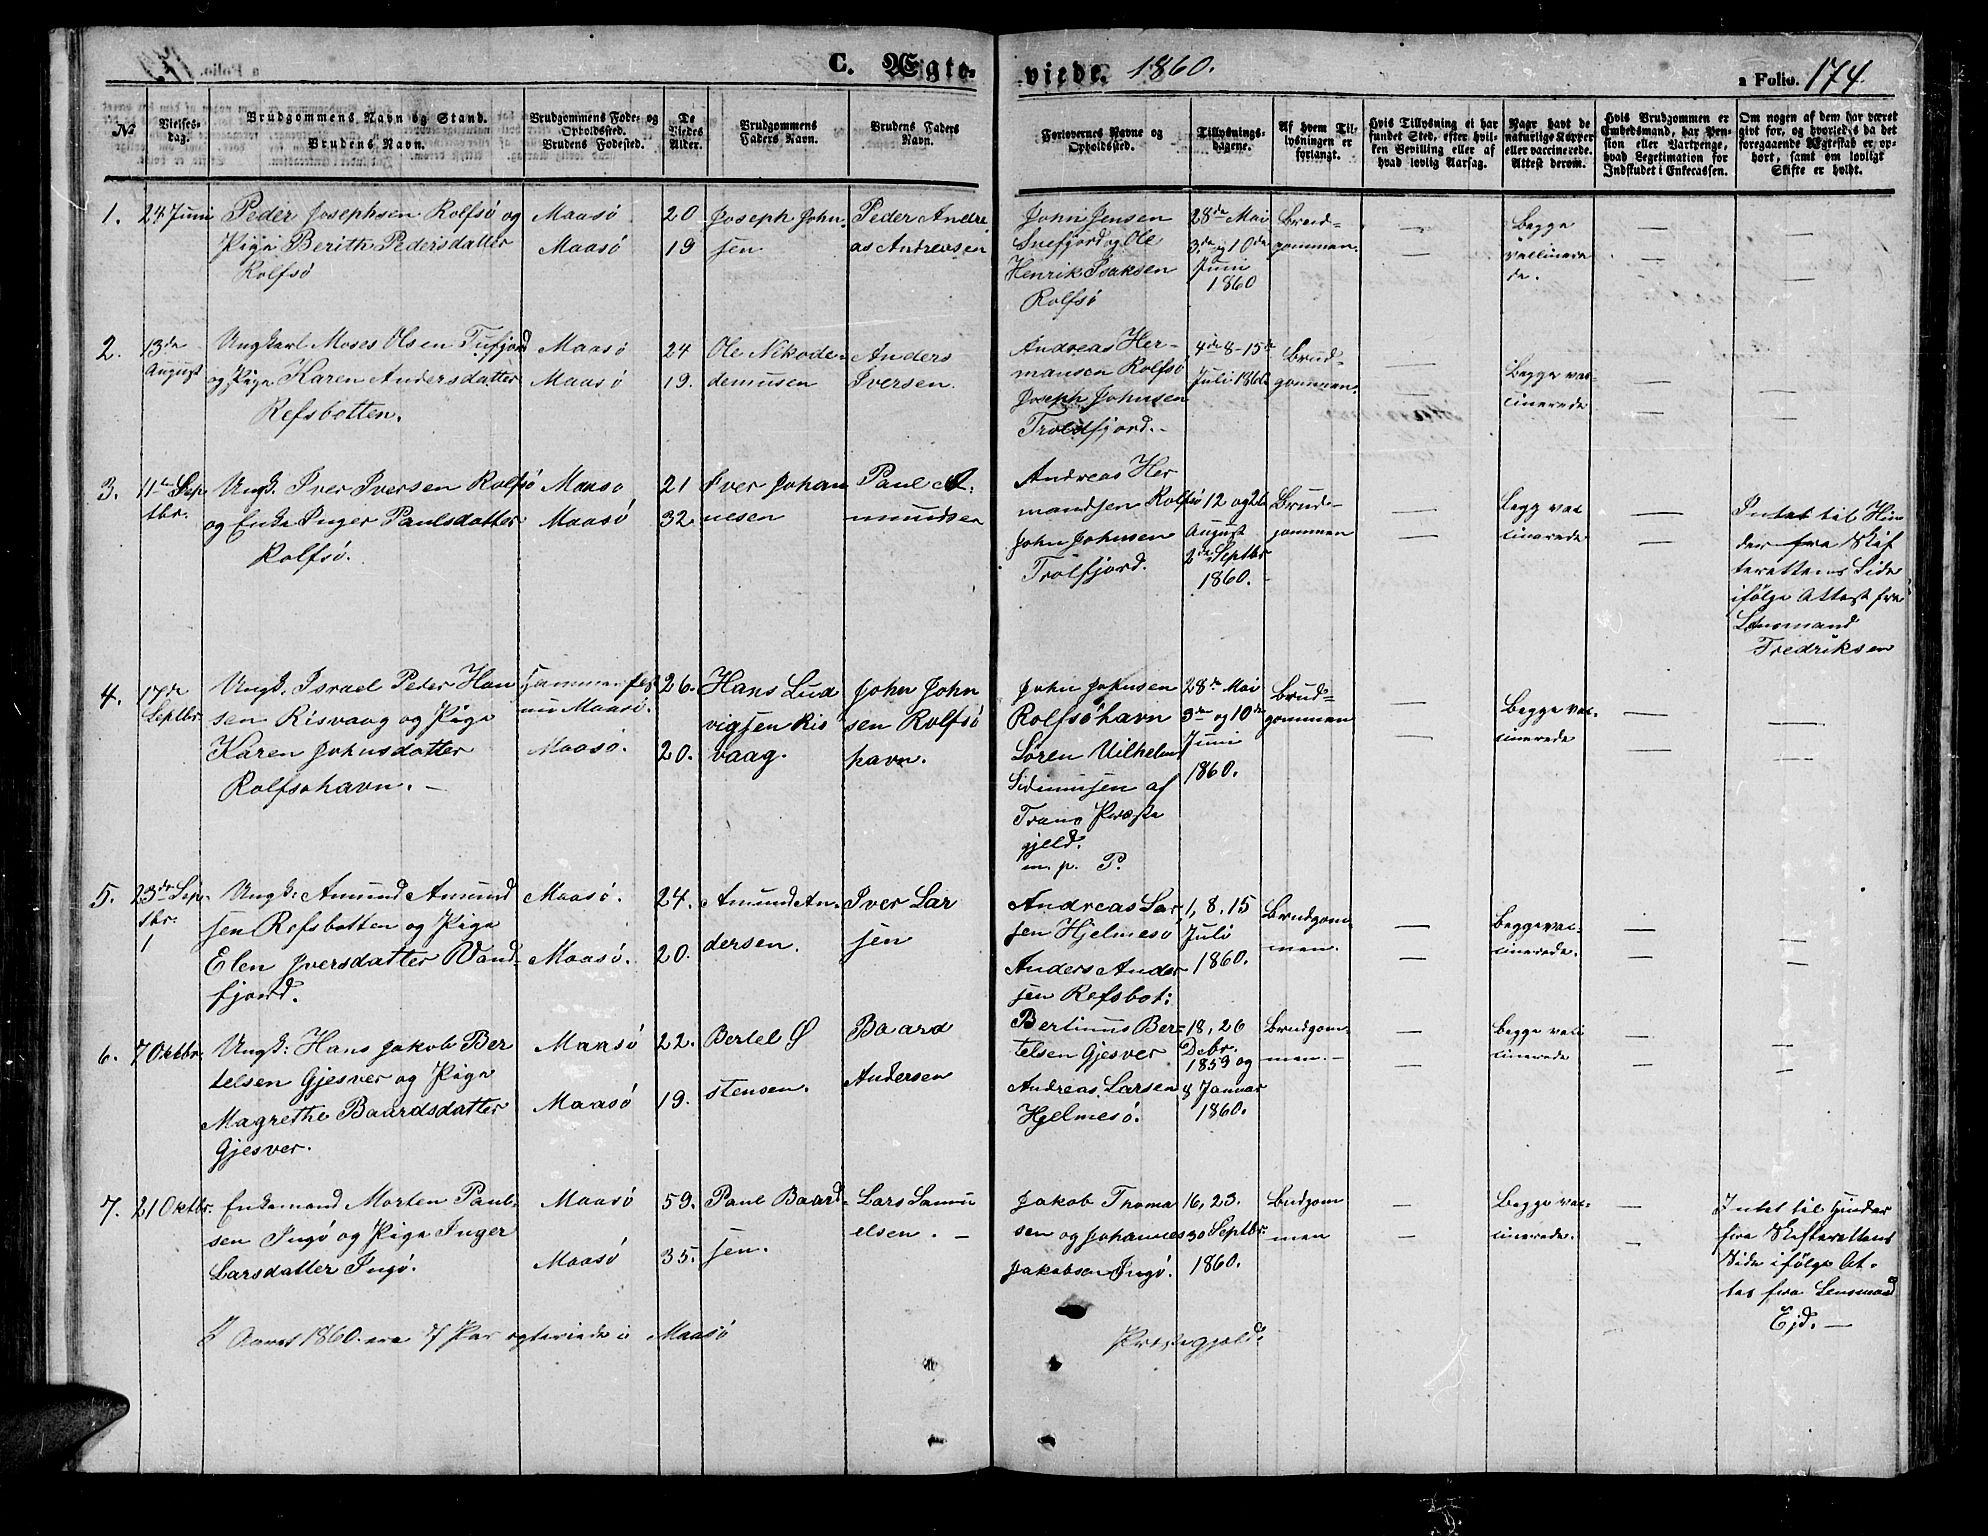 C. Ægte-
viede. 1860.
a Folio. 174.
No
Vielses-
dag.
Brudgommens Navn og Stand.
Brudens Navn.
Brudgommens Føde- og
Opholdssted.
Brudens Fødested.
De
Viedes
Alder.
Brudgommens
Faders Navn.
Brudens Faders
Navn.
Forlovernes Navne og
Opholdssted.
Tillysnings-
dagene.
Af hvem Til-
lysningen er
forlangt.
Hvis Tillysning ei har
fundet Sted, efter hvil-
ken Bevilling eller af
hvad lovlig Aarsag.
Naar havt de
naturlige Kopper
eller vaccinerede.
Attest derom.
Hvis Brudgommen er
Embedsmand, har Pen-
sion eller Vartpenge,
hvad Legitimation for
Indskudet i Enkecassen.
Om nogen af dem har været
givt før, og hvorledes da det
foregaaende Ægteskab er op-
hørt, samt om lovligt
Skifte er holdt.
1.
24 Juni
Peder Josephsen Rolfsø og
Pige Berith Pedersdatter
Rolfsø
Maasø
Maasø
20
19
Joseph John-
sen
Peder Andre-
as Andreasen
John Jensen
Snefjord og Ole
Henrik Isaksen
Rolfsø
28de Mai
3de og 10de
Juni
1860
Brud-
gommen.
Begge
vaccinere
de.
2.
13de
August
Ungkarl Moses Olsen Tufjord
og Pige Karen Andersdatter
Refsbotten.
Maasø
Maasø
24
19.
Ole Nikode-
demusen
Anders
Iversen.
Andreas Her-
mansen Rolfsø
Joseph Johnsen
Troldfjord.
8-15de
Juli 1860
Brud-
gommen.
Begge vac-
cinerede
3.
11te Sep-
tbr.
Ungk. Iver Iversen Rolfsø
og Enke Inger Paulsdatter
Rolfsø.
Maasø
Maasø
21
32.
Iver Johan
nesen
Paul A-
mundsen
Andreas Her
mandsen Rolfsø
John Johnsen
Trolfjord.
12 og 26
August
2de Septbr
1860.
Brud-
gommen
Begg vac
cinerede
Intet til Hin
der fra Skif
terettens Side
ifølge Attest fra
Lensmand
Fredriksen
4.
17de
Septbr.
Ungk. Israel Peder Han
sen Risvaag og Pige
Karen Johnsdatter
Rolfsøhavn.
Hammerfest
nu Maasø.
Maasø.
26.
20.
Hans Lud
vigsen Ris
vaag.
John John
sen Rolfsø
havn.
John Johnsen
Rolfsøhavn
Søren Vilhelm
af
Tranø Præste
gjeld.
m. p. P.
28de Mai
3de og 10de
Juni
1860.
Brud-
gommen
Begge vac-
cinerede
5.
23de Sep-
tbr.
Ungk: Amund Amund
sen Refsbotten og Pige
Elen Iversdatter Vand-
fjord.
Maasø.
Maasø.
24.
20.
Amund An-
dersen.
Iver Lar
sen
Andreas Lar-
sen Hjelmesø
Anders Ander
sen Refsbot:
1, 8, 15
Juli
1860.
Brudgom-
men.
Begge vac-
cinerede.
6.
7 Oktbr.
Ungk: Hans Jakob Ber
telsen Gjesver og Pige
Magrethe Baardsdatter
Gjesver.
Maasø
Maasø
22.
19.
Bertel Ø
stensen.
Baard
Andersen
Bertinus Ber-
telsen Gjesver
Andreas Larsen
Hjelmesø.
18, 26
Debr.
1859 og
8 Januar
1860.
Brudgom-
men.
Begge vac
cinerede
7.
21 Oktbr.
Enkemand Morten Paul-
sen Ingø og Pige Inger
Larsdatter Ingø.
Maasø
Maasø
59.
35.
Paul Baard-
sen.
Lars Samu
elsen.
Jakob Thoma
sen og Johannes
Jakobsen Ingø.
16, 23.
30 Septbr.
1860.
Budgom
men
Begge vac-
cinerede.
Intet til Hinder
fra Skifterettens
Side ifølge At-
test fra Lensmand
Ejd.
I Aaret 1860. ere 7 Par egteviede i Maasø
Præstegjeld.